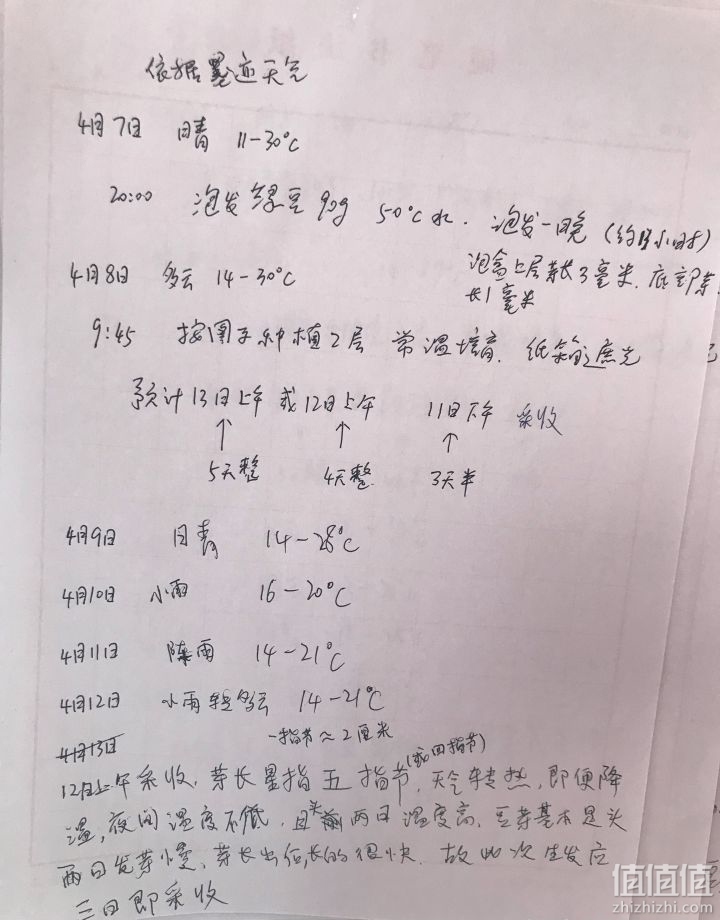 依据墨迹天气
4月7日 晴 11-30°C
20:00 泡发绿豆90g 50°C水. 泡发一晚(约13小时)
4月8日 多云 14-30°C 泡盒上层芽长3毫米. 底部
长1毫米
9:45 按图示种植2层 常温培育. 纸箱遮光
预计13日上午或12日上午 11日下午 采收
↑ ↑ ↑
5天整 4天整 3天半
4月9日 晴 14-28°C
4月10日 小雨 16-20°C
4月11日 阵雨 14-21°C
4月12日 小雨转多云 14-21°C
4月13日 一指节≈2厘米
(或四指节)
12日上午采收. 芽长呈指五指节, 天气转热, 即便降
温, 夜间温度不低. 且头两日温度高. 豆芽基本是头
两日发芽慢, 芽长出后, 长的很快. 故此次生发应
三日即采收
值值值
zhizhizhi.com